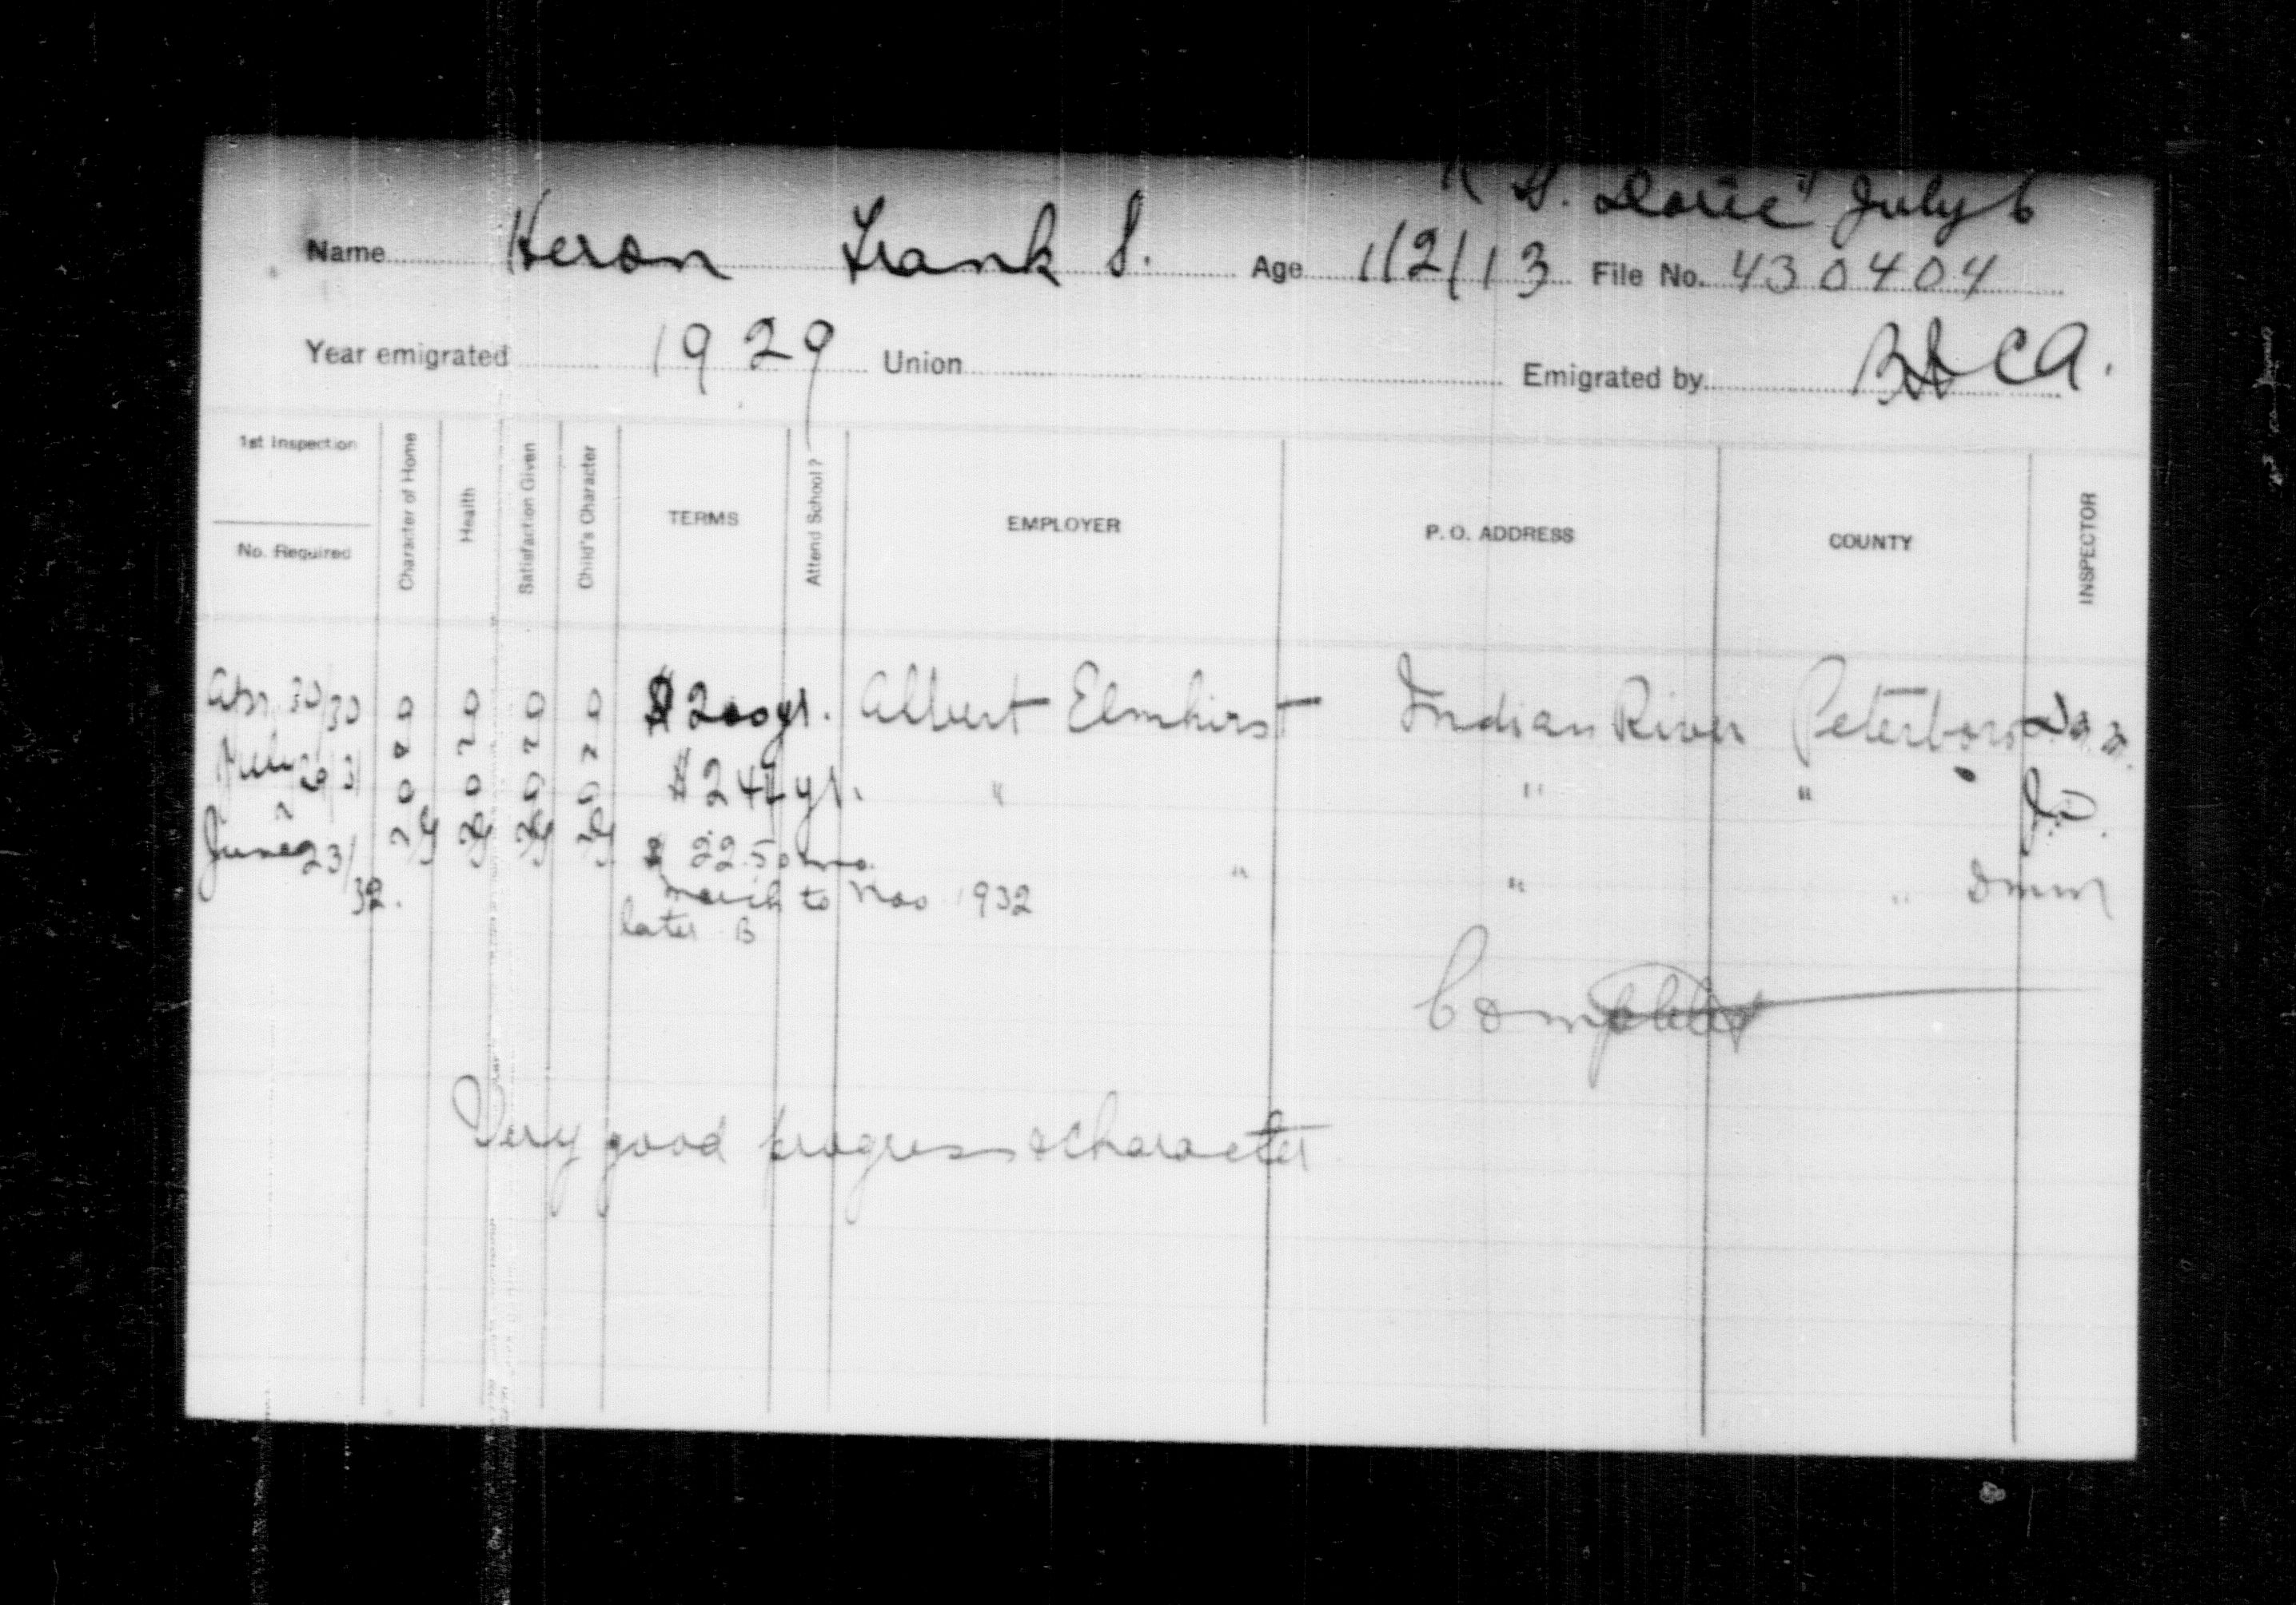 "Doric" July 6
Name Heron Frank S. Age 1/2/13 File No. 430404
Year emigrated 1929 Union Emigrated by
1st Inspection
No. Required
Character of Home
Health
Satisfaction Given
Child's Character
TERMS
Attend School?
EMPLOYER
P. O. ADDRESS
COUNTY
INSPECTOR
Apr. 30/30 g g g g $200 yr. Albert Elmhirst Indian River Peterboro
29/31 g g g g $244 yr. " " " J.D.
June 23/32. $22.50 mo. " " "
March to Nov 1932
later B
Completed
Very good progress & character